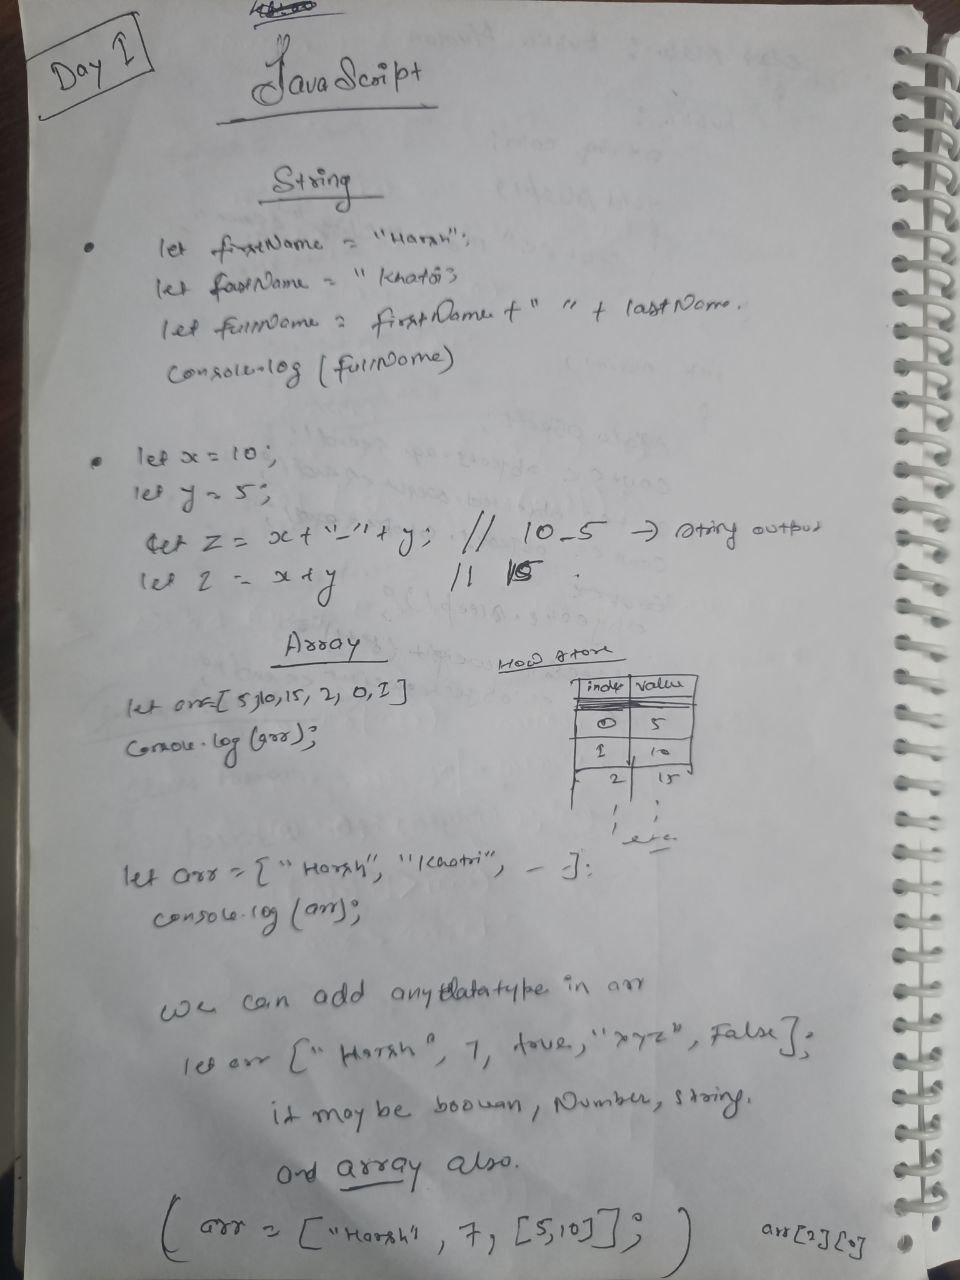 Day 1
JavaScript
String
• let firstName = "Harsh";
let lastName = "Khatri
let fullName = firstName + " " + lastName.
Console.log (fullName)
• let x = 10;
let y = 5;
let z = x + "-" + y; // 10-5 → string output
let z = x + y // 15
Array
How store
let arr=[5,10,15, 2, 0, 1]
index value
Console.log (arr);
0 5
1 10
2 15
etc.
let arr = ["Harsh", "Khatri", - ];
console.log (arr);
we can add any datatype in arr
let arr ["Harsh", 7, true, "xyz", False];
it may be boolean, Number, string.
and array also.
( arr = ["Harsh", 7, [5,10]]; ) arr[2][0]